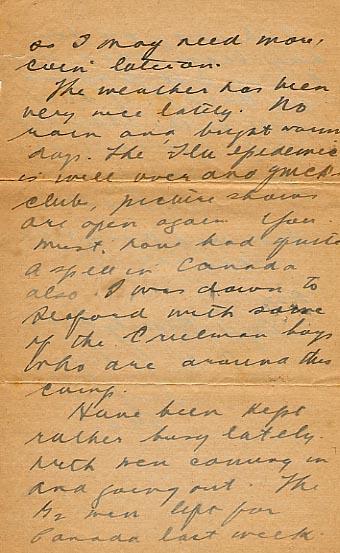 so I may need more,
even later on.
The weather has been
very nice lately. No
rain and bright warm
days. The Flu epidemic
is well over and
club, picture shows
are open again You
must have had quite
a spell in Canada
also. I was down to
Seaford with some
of the Creelman boys
who are around this
camp.
Have been kept
rather busy lately
with men coming in
and going out. The
men left for
Canada last week.